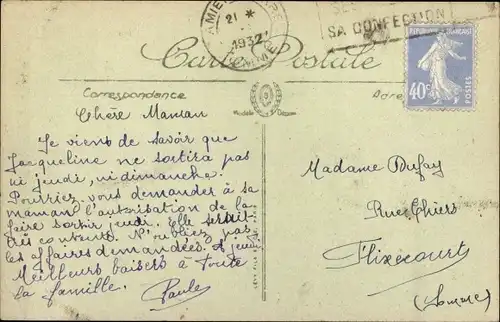 AMIENS
21 *
1932
SA CONFECTION
Carte Postale
REPUBLIQUE FRANÇAISE
40c
POSTES
Correspondance
Chère Maman
Je viens de savoir que
Jacqueline ne sortira pas
ni jeudi, ni dimanche.
Pourriez-vous demander à sa
maman l'autorisation de la
faire sortir jeudi. Elle serait
très contente. N'oubliez pas
les affaires demandées. A jeudi.
Meilleurs baisers à toute
la famille. Paule
Madame Dufay
Rue Thiers
Flixecourt
(Somme)